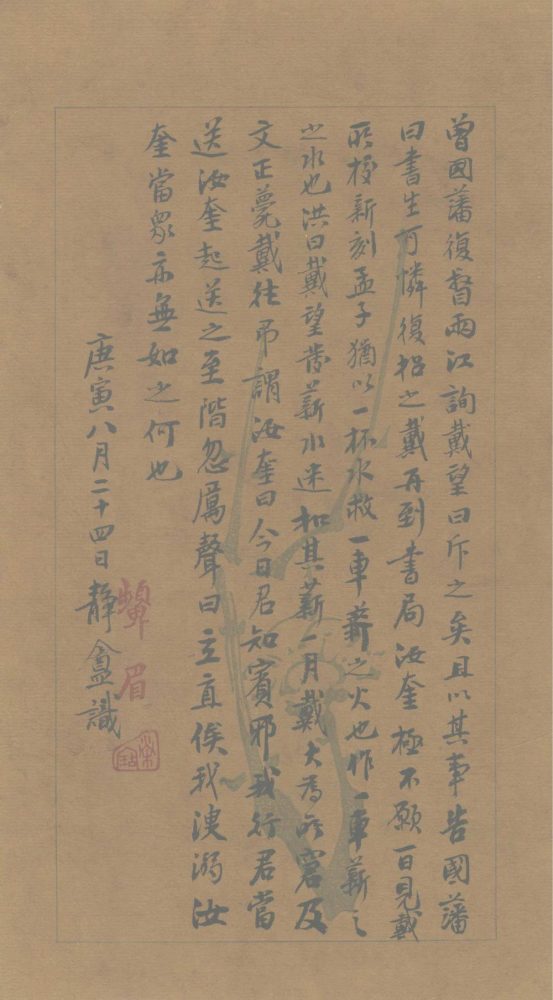 曾國藩復督兩江詢戴望曰斥之矣且以其事告國藩
曰書生可憐復招之戴再到書局汝奎極不願一日見戴
所校新刻孟子猶以一杯水救一車薪之火也作一車薪之
之水也洪曰戴望發薪水迷扣其薪一月戴大為所窘及
文正薨戴往弔謂汝奎曰今日君知賓邪我行君當
送汝奎起送之至階忽厲聲曰立直俟我溲溺汝
奎當眾亦無如之何也
庚寅八月二十四日靜盦識
眉